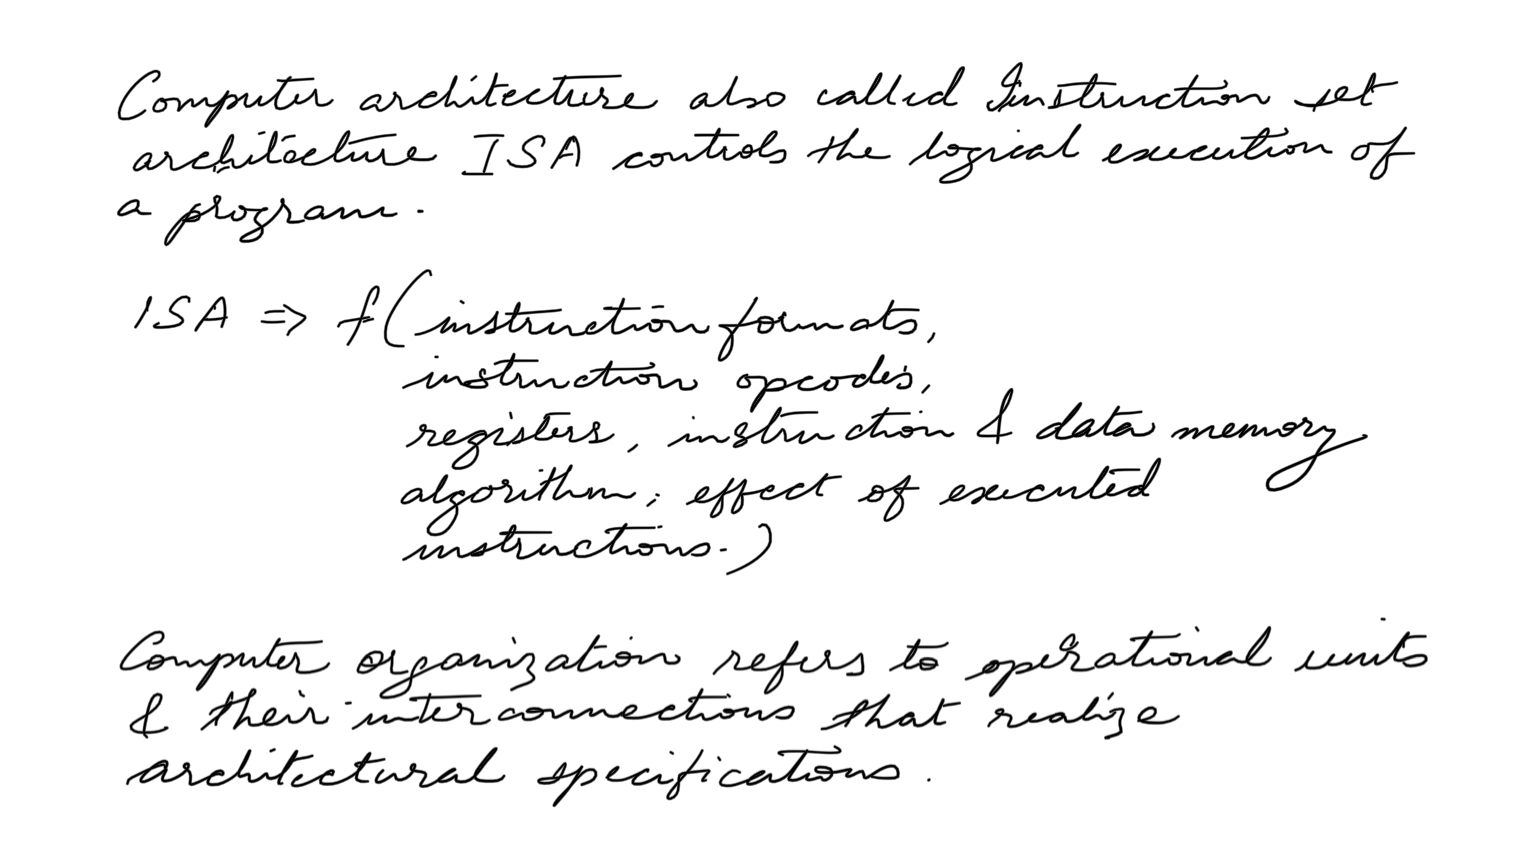 Computer architecture also called Instruction set
architecture ISA controls the logical execution of
a program.
ISA => f(instruction formats,
instruction opcodes,
registers, instruction & data memory
algorithm; effect of executed
instructions.)
Computer organization refers to operational units
& their interconnections that realize
architectural specifications.